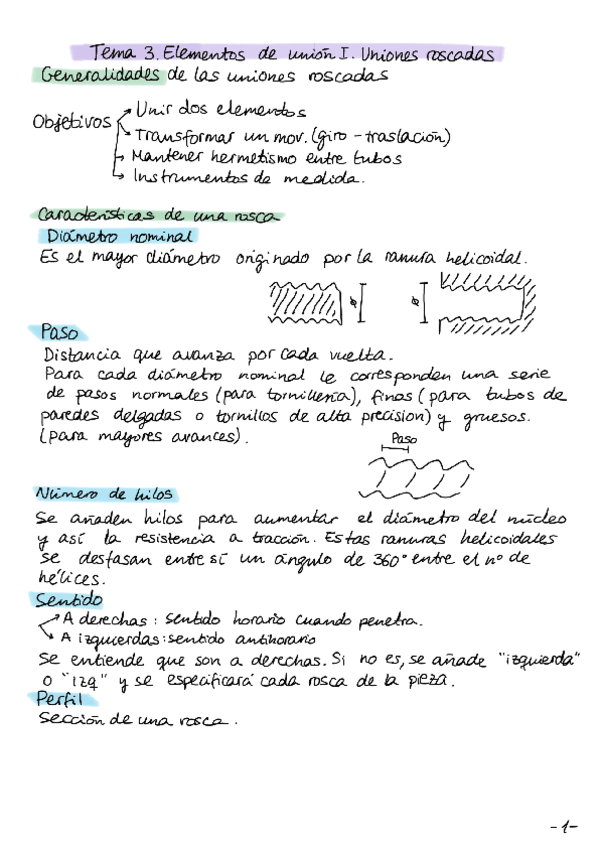 Tema 3. Elementos de unión I. Uniones roscadas
Generalidades de las uniones roscadas
Objetivos
Unir dos elementos
Transformar un mov. (giro - traslación)
Mantener hermetismo entre tubos
Instrumentos de medida.
Características de una rosca
Diámetro nominal
Es el mayor diámetro originado por la ranura helicoidal.
ø ø
Paso
Distancia que avanza por cada vuelta.
Para cada diámetro nominal le corresponden una serie
de pasos normales (para tornillería), finos (para tubos de
paredes delgadas o tornillos de alta precision) y gruesos.
(para mayores avances).
Paso
Número de hilos
Se añaden hilos para aumentar el diámetro del núcleo
y así la resistencia a tracción. Estas ranuras helicoidales
se desfasan entre sí un ángulo de 360° entre el nº de
hélices.
Sentido
A derechas: sentido horario cuando penetra.
A izquierdas: sentido antihorario
Se entiende que son a derechas. Si no es, se añade "izquierda"
o "izq" y se especificará cada rosca de la pieza.
Perfil
Sección de una rosca.
-1-